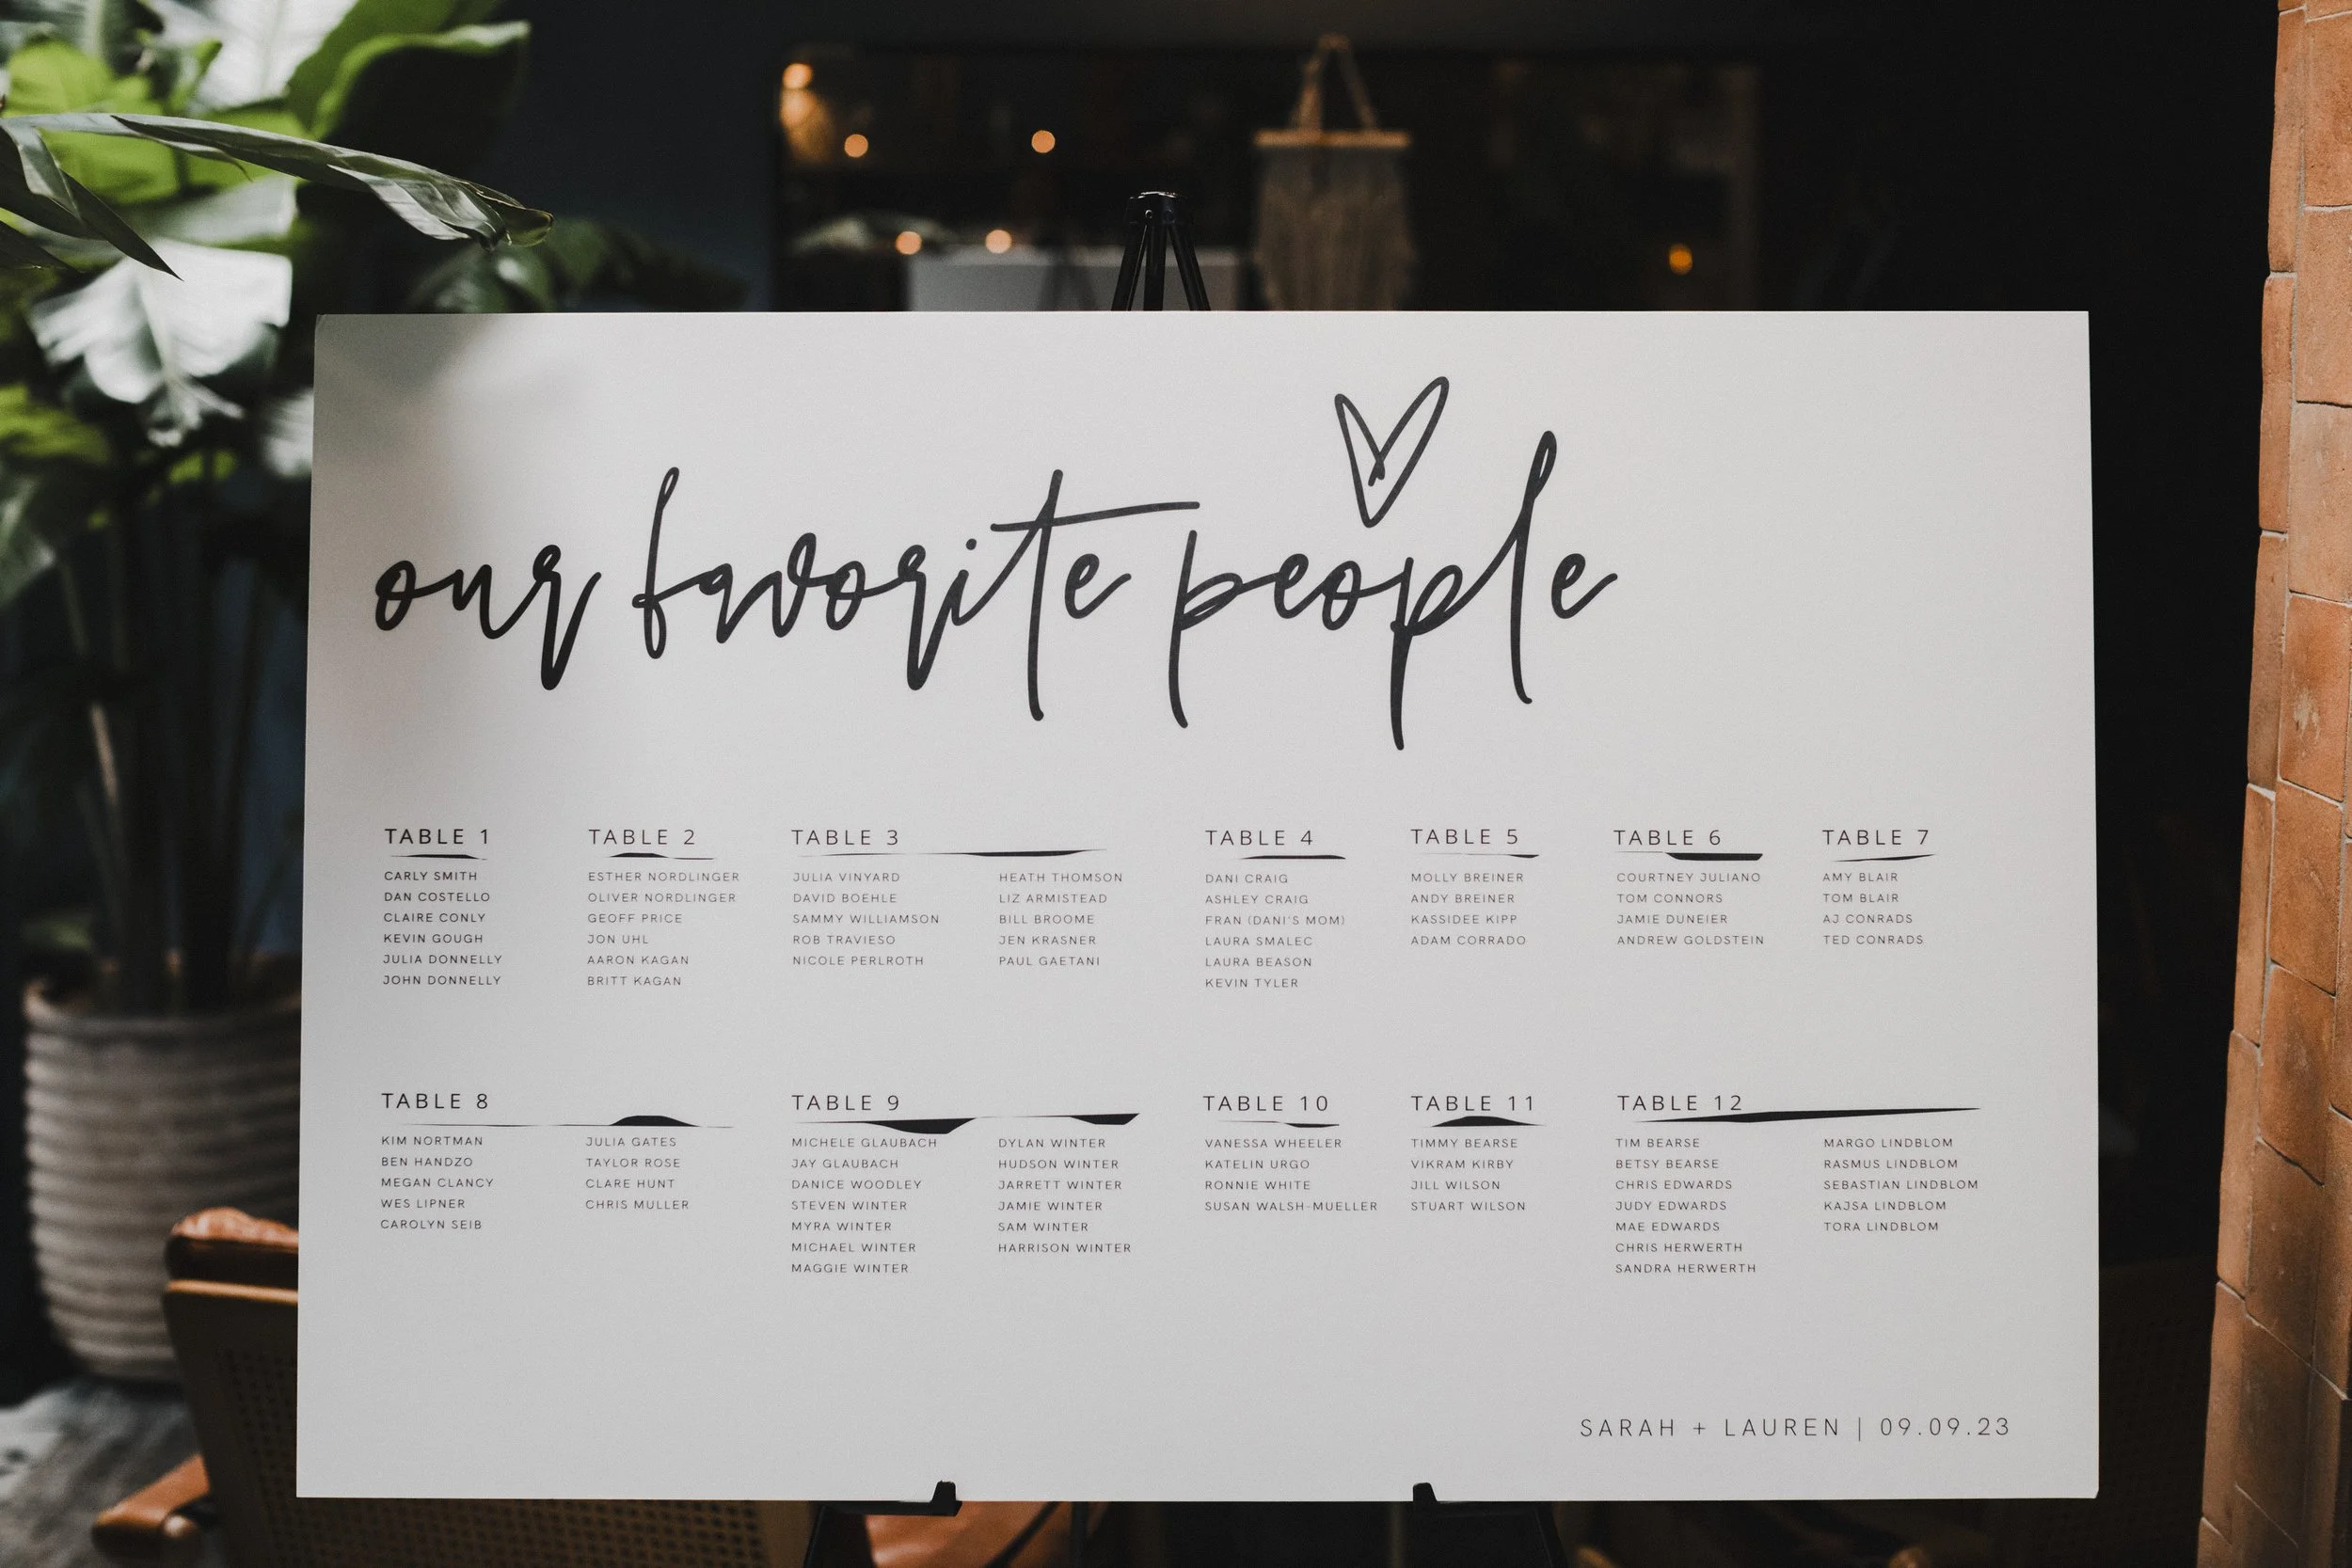 our favorite people
TABLE 1
CARLY SMITH
DAN COSTELLO
CLAIRE CONLY
KEVIN GOUGH
JULIA DONNELLY
JOHN DONNELLY
TABLE 2
ESTHER NORDLINGER
OLIVER NORDLINGER
GEOFF PRICE
JON UHL
AARON KAGAN
BRITT KAGAN
TABLE 3
JULIA VINYARD
DAVID BOEHLE
SAMMY WILLIAMSON
ROB TRAVIESO
NICOLE PERLROTH
HEATH THOMSON
LIZ ARMISTEAD
BILL BROOME
JEN KRASNER
PAUL GAETANI
TABLE 4
DANI CRAIG
ASHLEY CRAIG
FRAN (DANI'S MOM)
LAURA SMALEC
LAURA BEASON
KEVIN TYLER
TABLE 5
MOLLY BREINER
ANDY BREINER
KASSIDEE KIPP
ADAM CORRADO
TABLE 6
COURTNEY JULIANO
TOM CONNORS
JAMIE DUNEIER
ANDREW GOLDSTEIN
TABLE 7
AMY BLAIR
TOM BLAIR
AJ CONRADS
TED CONRADS
TABLE 8
KIM NORTMAN
BEN HANDZO
MEGAN CLANCY
WES LIPNER
CAROLYN SEIB
JULIA GATES
TAYLOR ROSE
CLARE HUNT
CHRIS MULLER
TABLE 9
MICHELE GLAUBACH
JAY GLAUBACH
DANICE WOODLEY
STEVEN WINTER
MYRA WINTER
MICHAEL WINTER
MAGGIE WINTER
DYLAN WINTER
HUDSON WINTER
JARRETT WINTER
JAMIE WINTER
SAM WINTER
HARRISON WINTER
TABLE 10
VANESSA WHEELER
KATELIN URGO
RONNIE WHITE
SUSAN WALSH-MUELLER
TABLE 11
TIMMY BEARSE
VIKRAM KIRBY
JILL WILSON
STUART WILSON
TABLE 12
TIM BEARSE
BETSY BEARSE
CHRIS EDWARDS
JUDY EDWARDS
MAE EDWARDS
CHRIS HERWERTH
SANDRA HERWERTH
MARGO LINDBLOM
RASMUS LINDBLOM
SEBASTIAN LINDBLOM
KAJSA LINDBLOM
TORA LINDBLOM
SARAH + LAUREN | 09.09.23